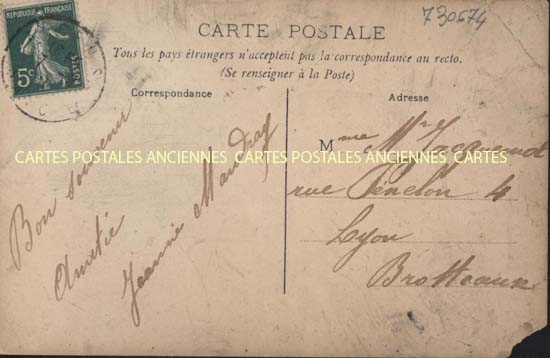 730674
REPUBLIQUE FRANÇAISE
5c
POSTES
CARTE POSTALE
Tous les pays étrangers n'acceptent pas la correspondance au recto.
(Se renseigner à la Poste)
Correspondance
Bon souvenir
Amitié
Jeannie Maudray
Adresse
Mme Mr Jacquemod
rue Fénelon 4
Lyon
Brotteaux
CARTES POSTALES ANCIENNES CARTES POSTALES ANCIENNES CARTES